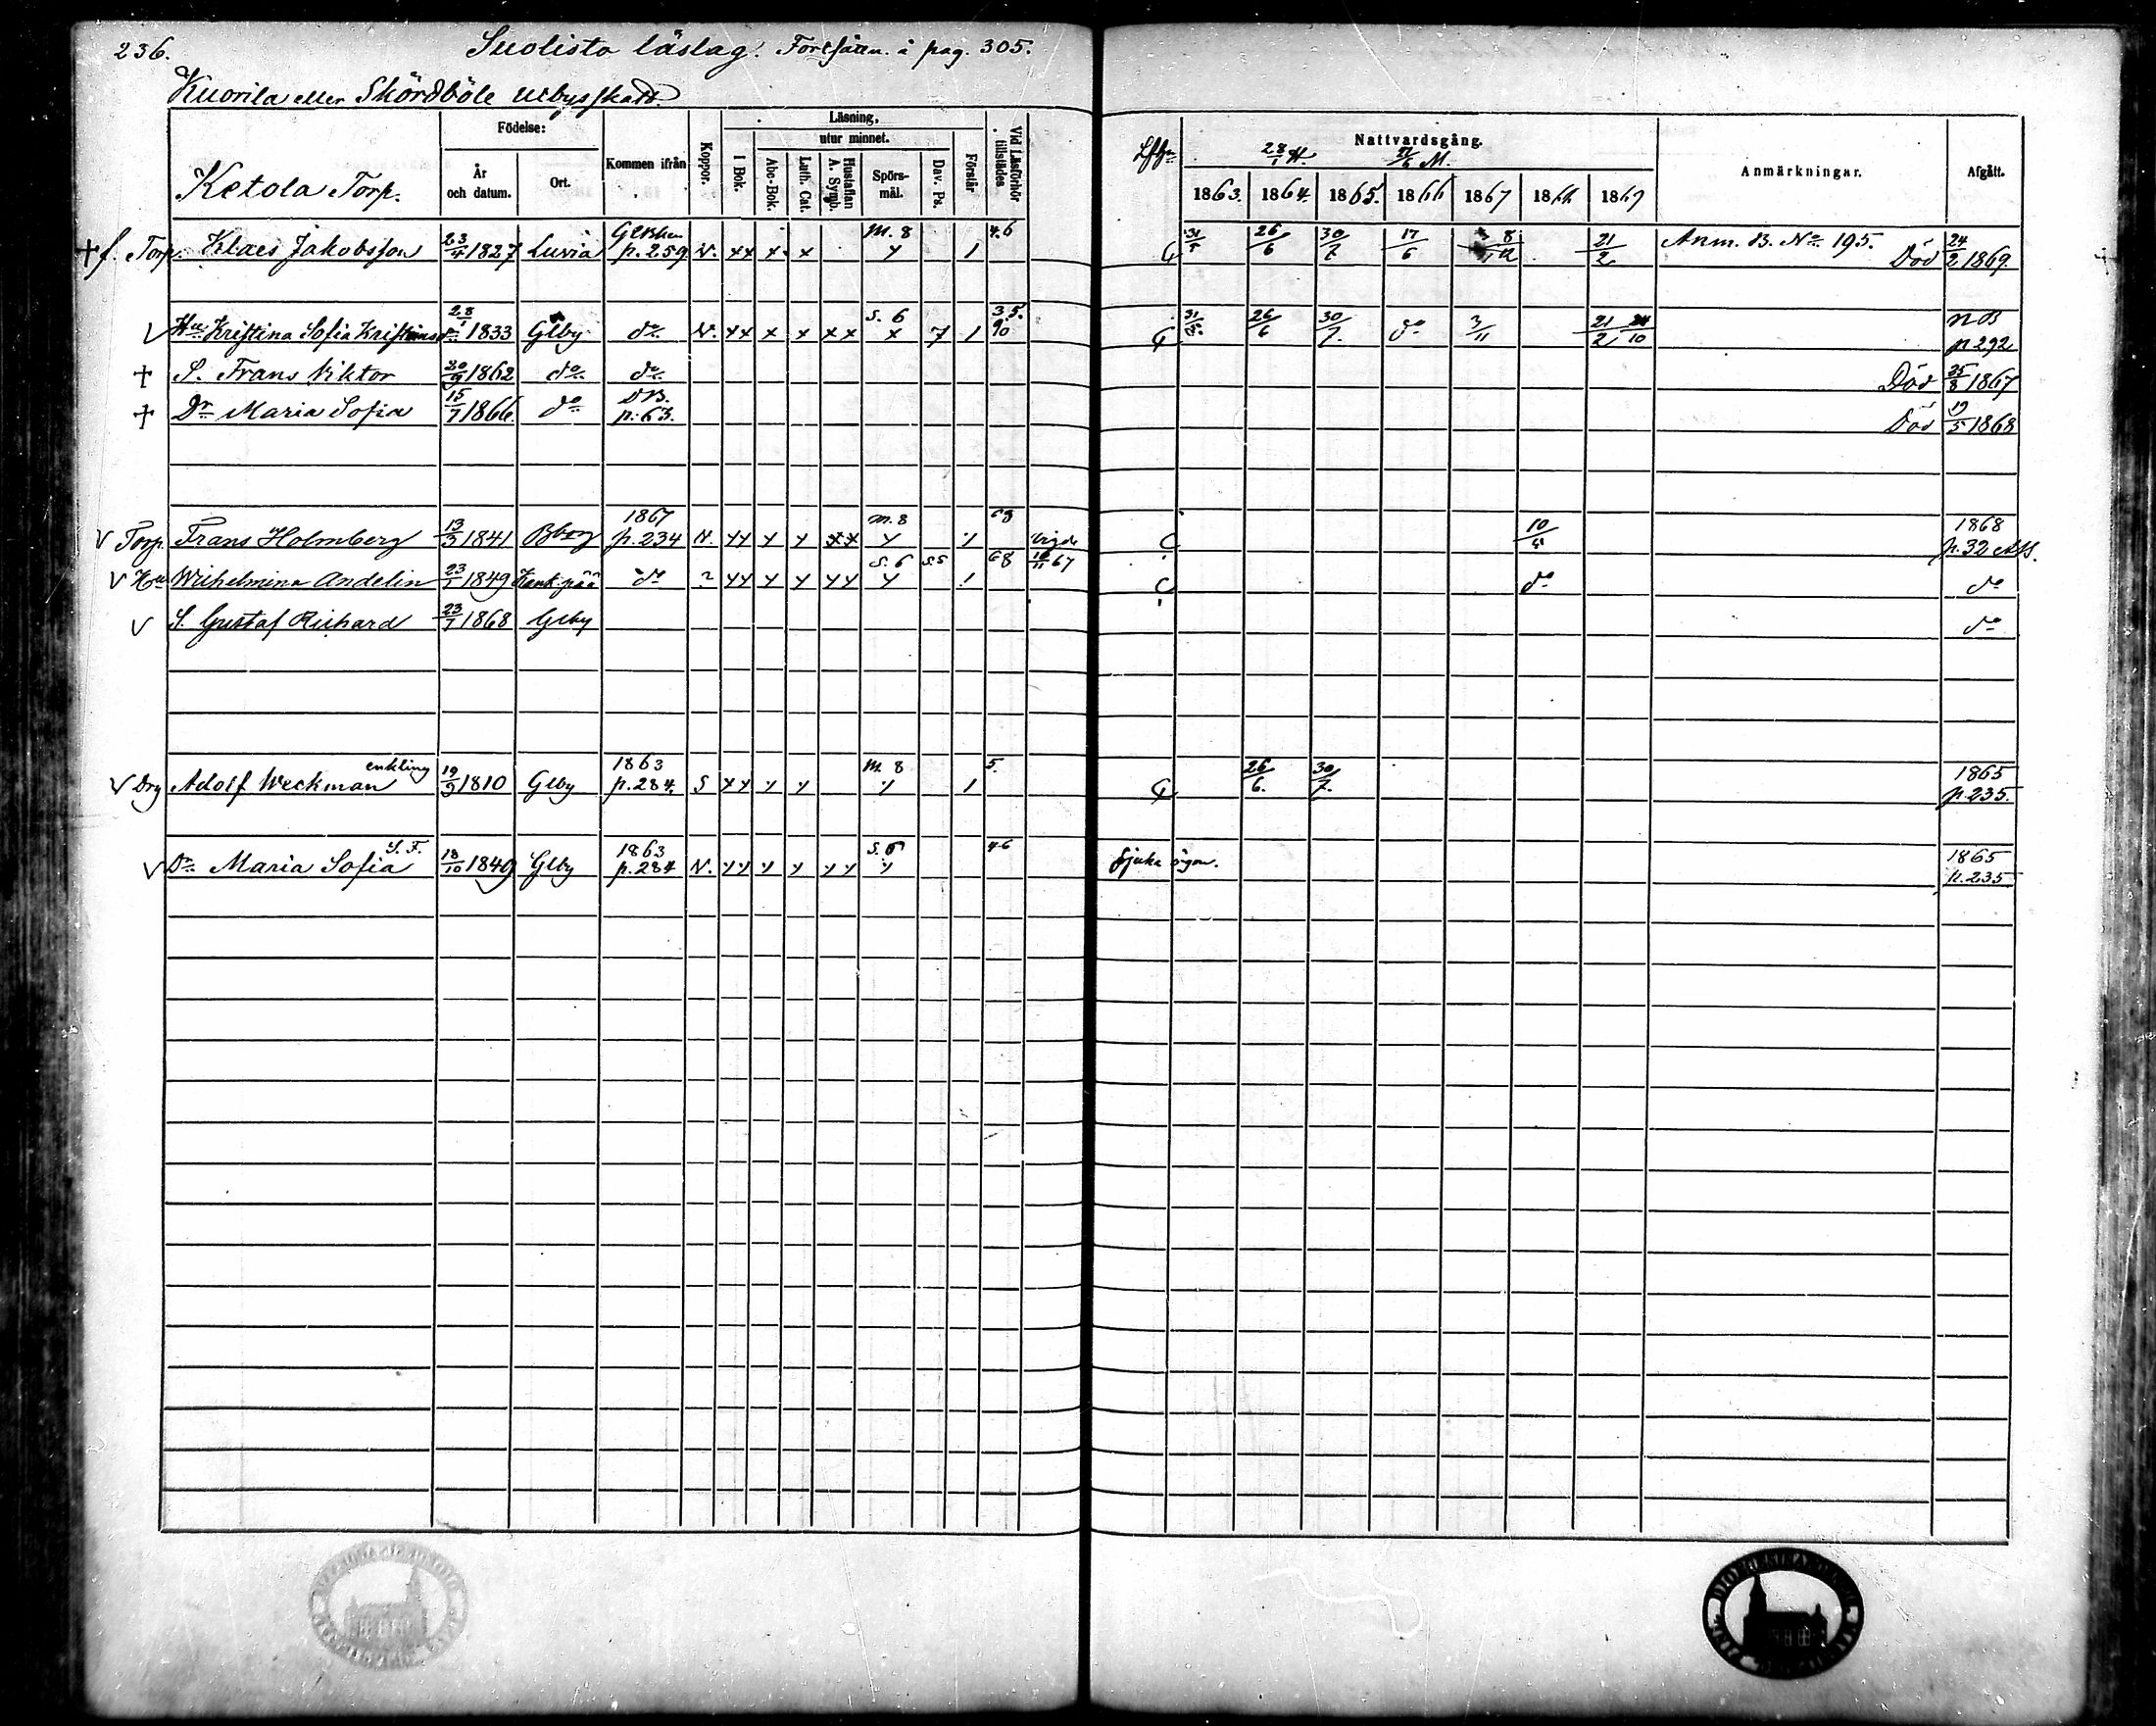 236. Suolisto läslag. Fortsätten. å pag. 305.
Kuorila eller Skördböle utbysskatt
Födelse: Läsning, Nattvardsgång.
utur minnet.
Ketola Torp. År och datum. Ort. Kommen ifrån Koppor. I Bok. Abc-Bok. Luth. Cat. Hustaflan A. Symb. Spörsmål. Dav. Ps. Förstår Vid Läsförhör tillstädes 28/1 1863. 1864. 1865. 1866 1867 1869 Anmärkningar. Afgått.
† f. Torp. Klaes Jakobsson 23/4 1827 Luvia p. 259 N. xx x x M. 8 1 4.6 31/5 26/6 30/7 17/6 21/2 Anm. B. No 195. Död 24/2 1869.
V Hu Kristina Sofia 28/1 1833 Glby do N. xx x x xx S. 6 x 7 1 3.5. 90 31/5 26/6 30/7. do 3/11 21/2 24/10 NB p 292
† S. Frans Viktor 20/9 1862 do do Död 25/8 1867
† Dr Maria Sofia 15/7 1866. do DB. p. 63. Död 19/5 1868
V Torp. Frans Holmberg 13/3 1841 Bborg 1867 p. 234 N. xx x x xx M. 8 x 1 68 Vigde 10 1868 p. 32
V Hu Wilhelmina Andelin 23/1 1849 Kankpää do ? xx x x xx S. 6 x S.S 1 68 10/11 67 do do
V S. Gustaf Richard 23/7 1868 Glby do
V Drg Adolf Weckman enkling 19/9 1810 Glby 1863 p. 284. S xx x x M. 8 x 1 5. 26/6. 30/7. 1865 p. 235.
V Dr Maria Sofia S. F. 18/10 1849 Glby 1863 p. 284 N. xx x x xx S. 6 x 46 Sjuka ögon. 1865 p. 235